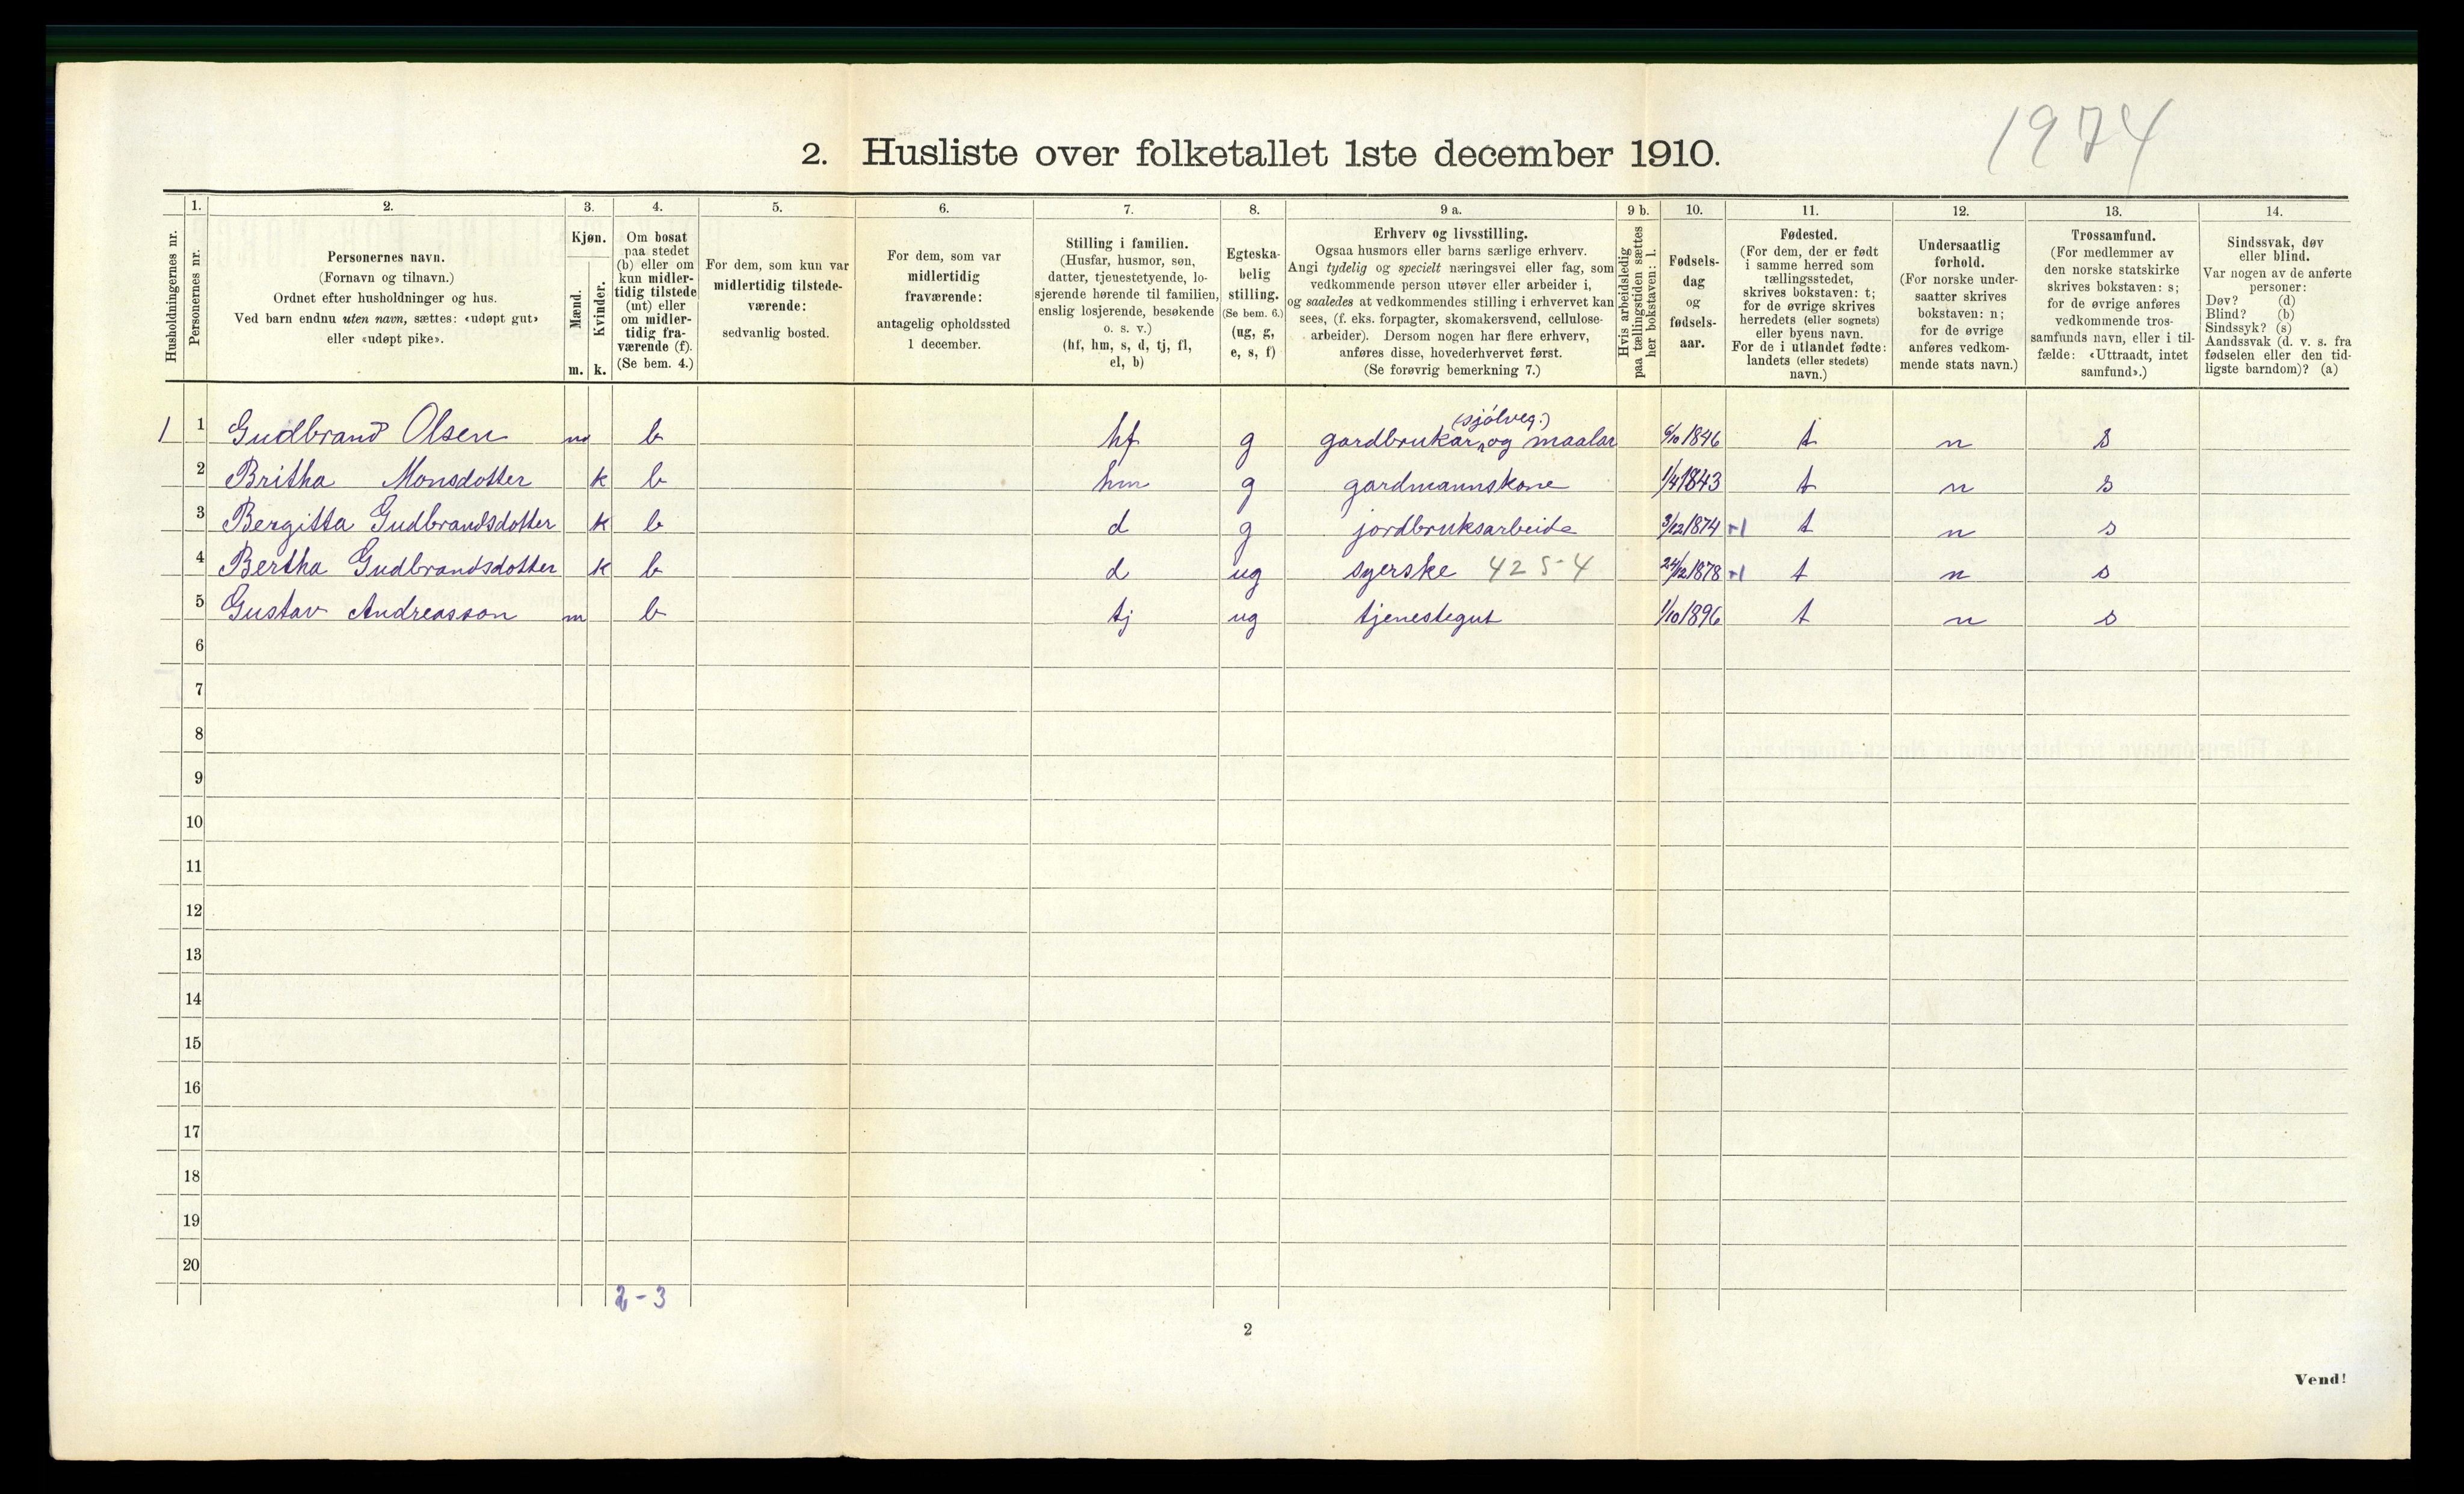 1974
2. Husliste over folketallet 1ste december 1910.
Husholdningernes nr.
1.
Personernes nr.
2.
Personernes navn.
(Fornavn og tilnavn.)
Ordnet efter husholdninger og hus.
Ved barn endnu uten navn, sættes: «udøpt gut»
eller «udøpt pike».
3.
Kjøn.
Mænd.
Kvinder.
m. k.
4.
Om bosat
paa stedet
(b) eller om
kun midler-
tidig tilstede
(mt) eller
om midler-
tidig fra-
værende (f).
(Se bem. 4.)
5.
For dem, som kun var
midlertidig tilstede-
værende:
sedvanlig bosted.
6.
For dem, som var
midlertidig
fraværende:
antagelig opholdssted
1 december.
7.
Stilling i familien.
(Husfar, husmor, søn,
datter, tjenestetyende, lo-
sjerende hørende til familien,
enslig losjerende, besøkende
o. s. v.)
(hf, hm, s, d, tj, fl,
el, b)
8.
Egteska-
belig
stilling.
(Se bem. 6.)
(ug, g,
e, s, f)
9 a.
Erhverv og livsstilling.
Ogsaa husmors eller barns særlige erhverv.
Angi tydelig og specielt næringsvei eller fag, som
vedkommende person utøver eller arbeider i,
og saaledes at vedkommendes stilling i erhvervet kan
sees, (f. eks. forpagter, skomakersvend, cellulose-
arbeider). Dersom nogen har flere erhverv,
anføres disse, hovederhvervet først.
(Se forøvrig bemerkning 7.)
9 b.
Hvis arbeidsledig
paa tællingstiden sættes
her bokstaven: l.
10.
Fødsels-
dag
og
fødsels-
aar.
11.
Fødested.
(For dem, der er født
i samme herred som
tællingsstedet,
skrives bokstaven: t;
for de øvrige skrives
herredets (eller sognets)
eller byens navn.
For de i utlandet fødte:
landets (eller stedets)
navn.)
12.
Undersaatlig
forhold.
(For norske under-
saatter skrives
bokstaven: n;
for de øvrige
anføres vedkom-
mende stats navn.)
13.
Trossamfund.
(For medlemmer av
den norske statskirke
skrives bokstaven: s;
for de øvrige anføres
vedkommende tros-
samfunds navn, eller i til-
fælde: «Uttraadt, intet
samfund».)
14.
Sindssvak, døv
eller blind.
Var nogen av de anførte
personer:
Døv? (d)
Blind? (b)
Sindssyk? (s)
Aandssvak (d. v. s. fra
fødselen eller den tid-
ligste barndom)? (a)
(sjølveg.)
1 1 Gudbrand Olsen m b hf g gardbrukar og maalar 6/10 1846 t n s
2 Britha Monsdotter k b hm g gardmannskone 1/4 1843 t n s
3 Bergitta Gudbrandsdotter k b d g jordbruksarbeide 3/12 1874 t n s
4 Bertha Gudbrandsdotter k b d ug syerske 425-4 24/12 1878 t n s
5 Gustav Andreasson m b tj ug tjenestegut 1/10 1896 t n s
6
7
8
9
10
11
12
13
14
15
16
17
18
19
20
2-3
2
Vend!